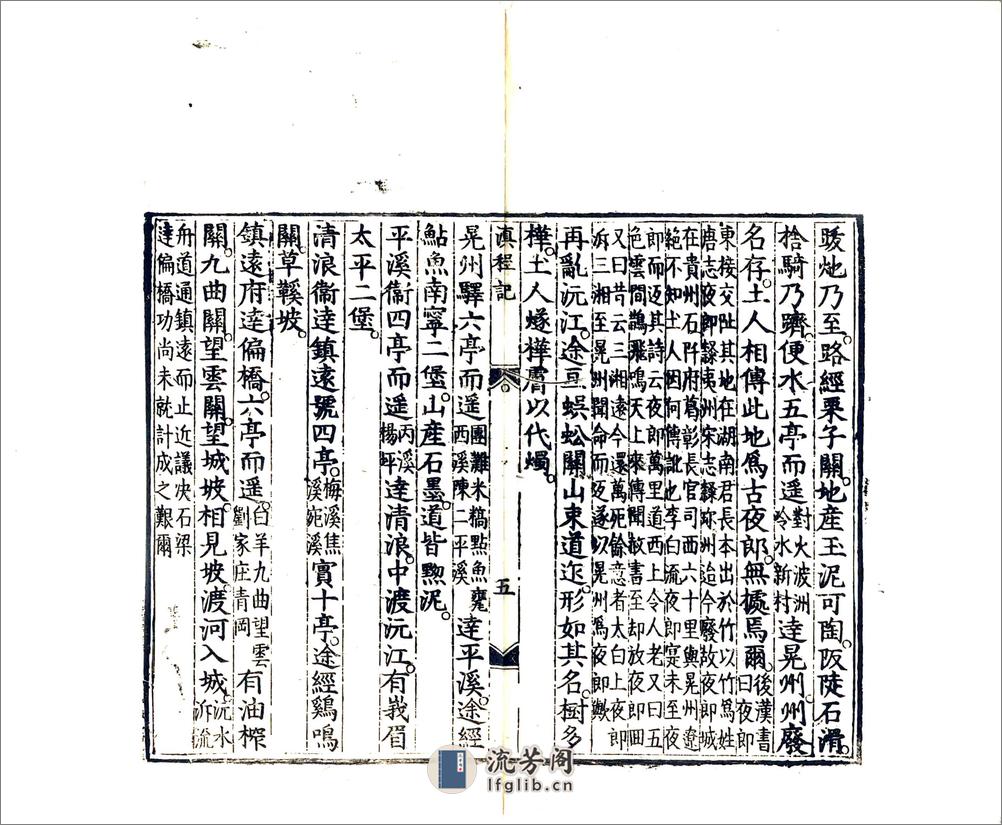 暖灺乃至路經栗子關地產玉泥可陶阪陡石滑
捨騎乃躋便水五亭而遥對火波洲冷水新村達晃州州廢
名存土人相傳此地為古夜郎無據焉爾後漢書曰夜郎
東接交趾其地在湖南君長本出於竹以竹為姓
唐志夜郎隸夷洲宋志隸珎洲迨今廢故夜郎城
在貴州石阡府葛彰長官司西六十里與晃州遼
絶不知土人因何傳訛也李白流夜郎寔未至夜
郎而返其詩云夜郎萬里道西上令人老又曰五
色雲間鵲飛鳴天上來傳聞赦書至却放夜郎囬
又曰昔云三湘遠今還萬死餘意者太白上夜郎
泝三湘至晃州聞命而返遂以晃州為夜郎歟
再亂沅江途亘蜈蚣關山束道迮形如其名樹多
樺土人燧樺膚以代燭
滇程記
五
晃州驛六亭而遥團灘米槁點魚甕西溪陳二平溪達平溪途經
鮎魚南寧二堡山產石墨道皆黝泥
平溪衞四亭而遥丙溪楊坪達清浪中渡沅江有峩眉
太平二堡
清浪衞達鎮遠號四亭梅溪焦溪宛溪實十亭途經鷄鳴
關草鞵坡
鎮遠府達偏橋六亭而遥白羊九曲望雲劉家庄青岡有油榨
關九曲關望雲關望城坡相見坡渡河入城沅水泝流
舟道通鎮遠而止近議決石梁
達偏橋功尚未就計成之艱爾
流芳阁
lfglib.cn